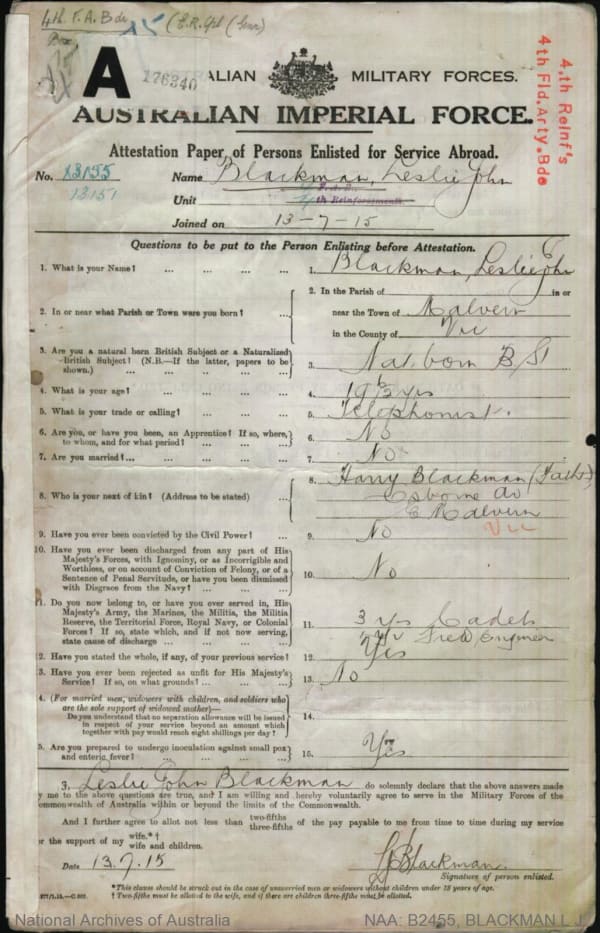 4th F. A. Bde
A
176340
ALIAN MILITARY FORCES.
AUSTRALIAN IMPERIAL FORCE.
4.th Reinf's
4th Fld. Arty. Bde
Attestation Paper of Persons Enlisted for Service Abroad.
No. 13155 Name Blackman, Leslie John
13151
Unit
4th Reinforcements
Joined on 13-7-15
Questions to be put to the Person Enlisting before Attestation.
1. What is your Name? ... ... ... ... 1. Blackman, Leslie John
2. In or near what Parish or Town were you born? ... 2. In the Parish of in or
near the Town of Malvern
in the County of Vic
3. Are you a natural born British Subject or a Naturalized
British Subject? (N.B.—If the latter, papers to be
shown.) ... ... ... ... 3. Nat born B/S
4. What is your age? ... ... ... ... 4. 19 yrs
5. What is your trade or calling? ... ... ... 5. Telephonist.
6. Are you, or have you been, an Apprentice? If so, where,
to whom, and for what period? ... ... ... 6. No
7. Are you married? ... ... ... ... 7. No
8. Who is your next of kin? (Address to be stated) ... 8. Harry Blackman (Father)
Osborne Av
E Malvern
Vic
9. Have you ever been convicted by the Civil Power? ... 9. No
10. Have you ever been discharged from any part of His
Majesty's Forces, with Ignominy, or as Incorrigible and
Worthless, or on account of Conviction of Felony, or of a
Sentence of Penal Servitude, or have you been dismissed
with Disgrace from the Navy? ... ... ... 10. No
11. Do you now belong to, or have you ever served in, His
Majesty's Army, the Marines, the Militia, the Militia
Reserve, the Territorial Force, Royal Navy, or Colonial
Forces? If so, state which, and if not now serving,
state cause of discharge ... ... ... 11. 3 yrs Cadets
Engineer
2. Have you stated the whole, if any, of your previous service? 12. Yes
3. Have you ever been rejected as unfit for His Majesty's
Service? If so, on what grounds? ... ... ... 13. No
4. (For married men, widowers with children, and soldiers who
are the sole support of widowed mother)—
Do you understand that no separation allowance will be issued
in respect of your service beyond an amount which
together with pay would reach eight shillings per day? 14.
5. Are you prepared to undergo inoculation against small pox
and enteric fever? ... ... ... 15. Yes
I, Leslie John Blackman do solemnly declare that the above answers made
y me to the above questions are true, and I am willing and hereby voluntarily agree to serve in the Military Forces of the
ommonwealth of Australia within or beyond the limits of the Commonwealth.
And I further agree to allot not less than two-fifths three-fifths of the pay payable to me from time to time during my service
or the support of my wife.*† wife and children.
Date 13.7.15 LJ Blackman.
Signature of person enlisted.
* This clause should be struck out in the case of unmarried men or widowers without children under 18 years of age.
† Two-fifths must be allotted to the wife, and if there are children three-fifths must be allotted.
National Archives of Australia NAA: B2455, BLACKMAN L J